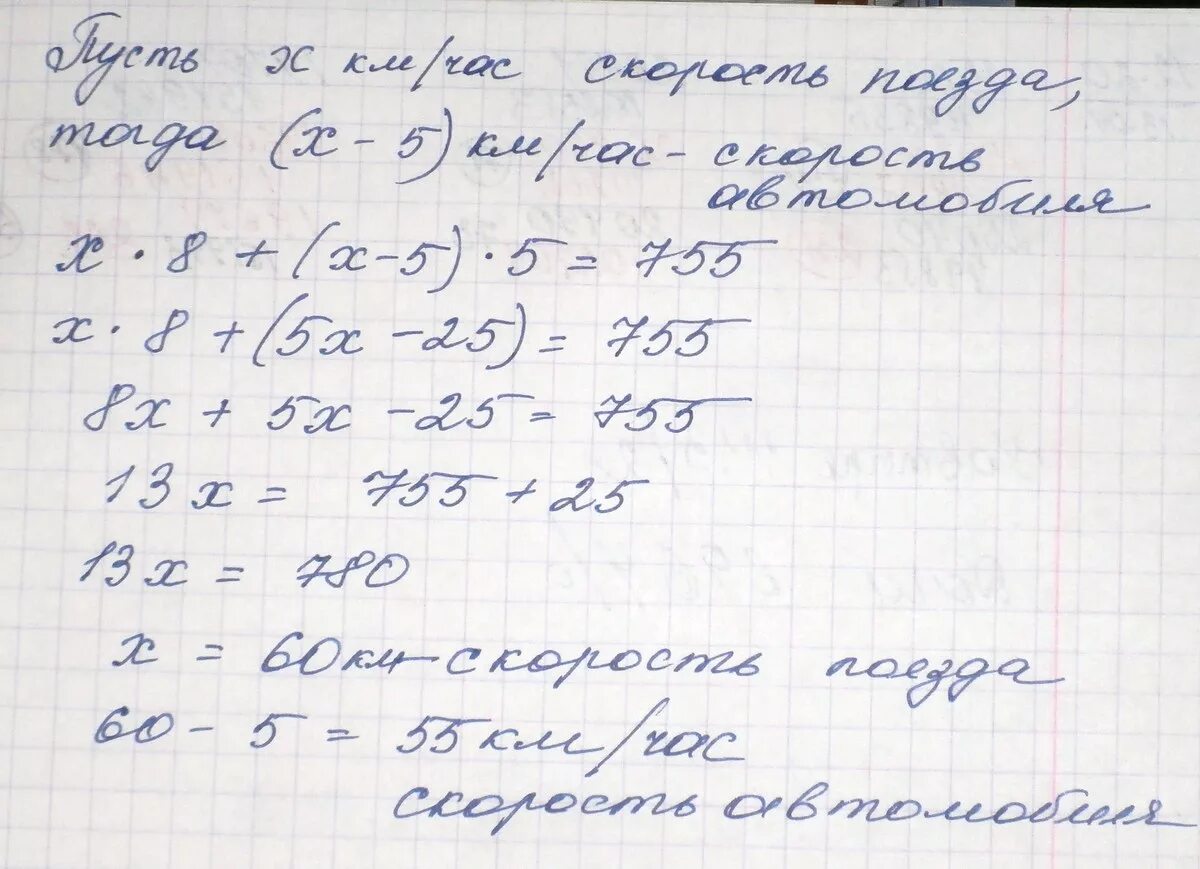 Пусть х км/час скорость поезда,
тогда (х - 5) км/час - скорость
автомобиля
х · 8 + (х - 5) · 5 = 755
х · 8 + (5х - 25) = 755
8х + 5х - 25 = 755
13х = 755 + 25
13х = 780
х = 60 км - скорость поезда
60 - 5 = 55 км/час
скорость автомобиля